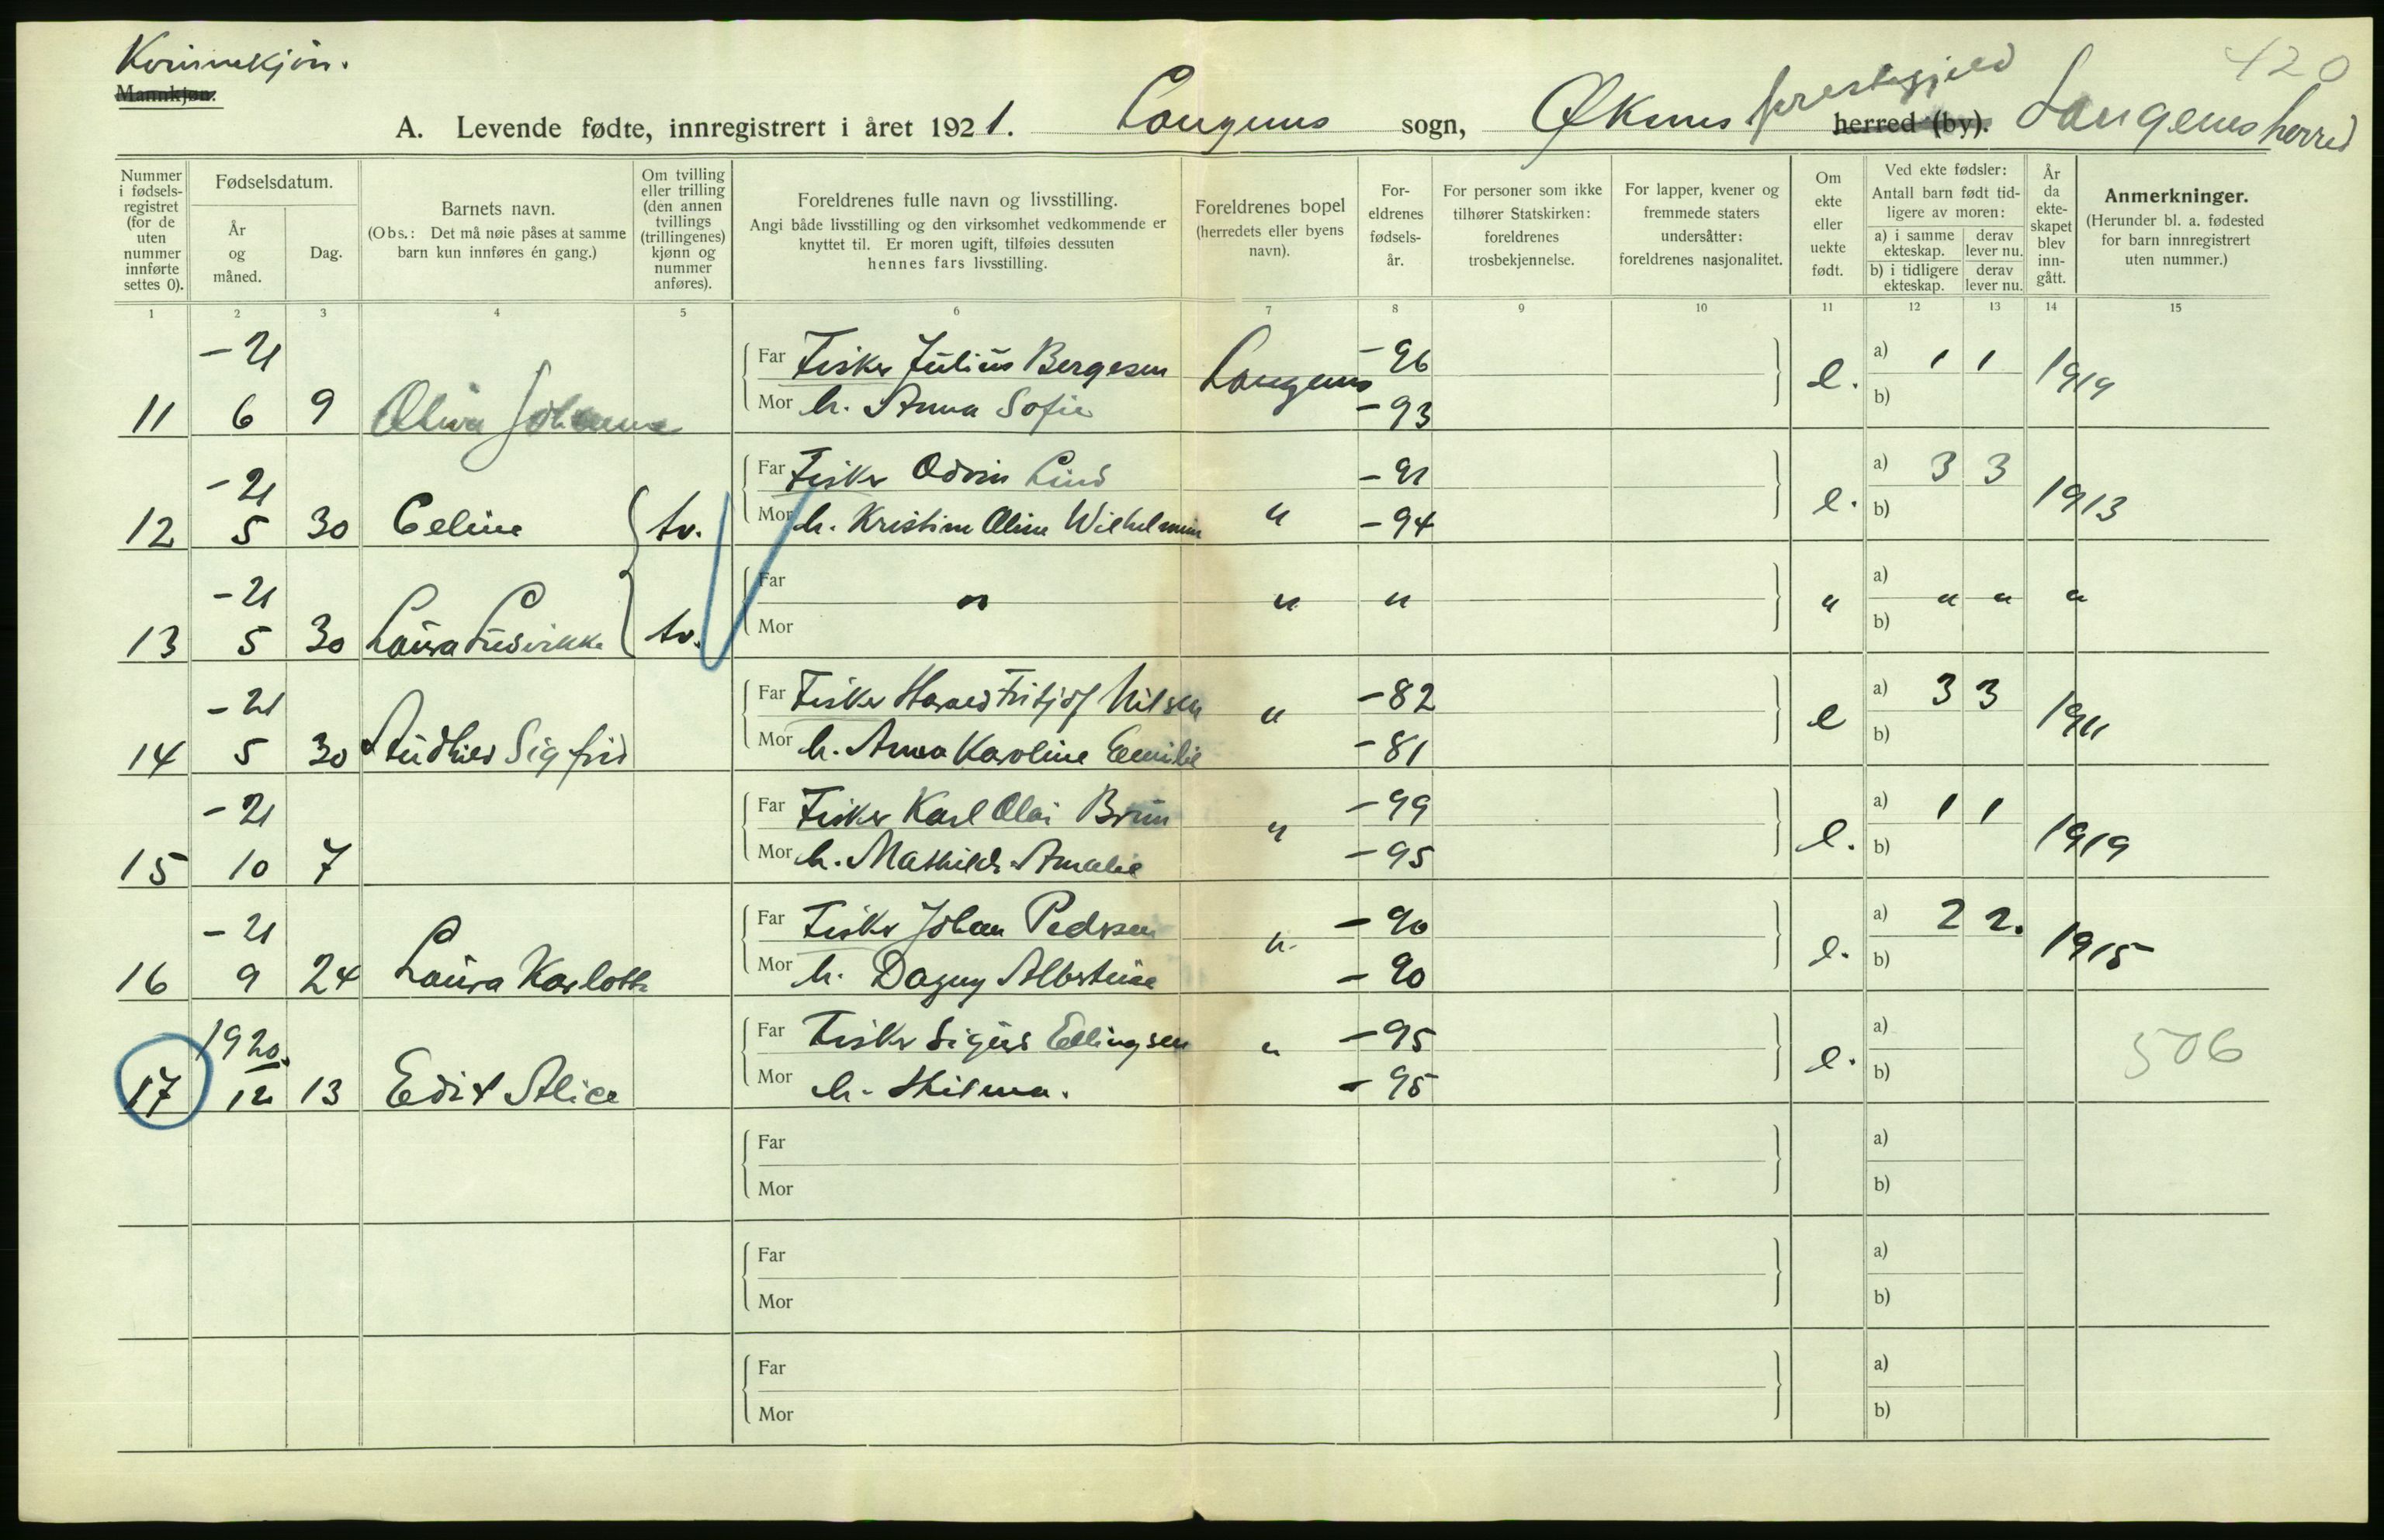 Kvinnekjøn.
Mannkjøn.
420
A. Levende fødte, innregistrert i året 1921. Langenes sogn, Øksnes prestegjeld herred (by). Langenes herred
Nummer i fødsels-registret (for de uten nummer innførte settes 0).
Fødselsdatum.
År og måned.
Dag.
Barnets navn.
(Obs.: Det må nøie påses at samme barn kun innføres én gang.)
Om tvilling eller trilling (den annen tvillings (trillingenes) kjønn og nummer anføres).
Foreldrenes fulle navn og livsstilling.
Angi både livsstilling og den virksomhet vedkommende er knyttet til. Er moren ugift, tilføies dessuten hennes fars livsstilling.
Foreldrenes bopel (herredets eller byens navn).
For-eldrenes fødsels-år.
For personer som ikke tilhører Statskirken: foreldrenes trosbekjennelse.
For lapper, kvener og fremmede staters undersåtter: foreldrenes nasjonalitet.
Om ekte eller uekte født.
Ved ekte fødsler:
Antall barn født tid-ligere av moren:
a) i samme ekteskap.
derav lever nu.
b) i tidligere ekteskap.
derav lever nu.
År da ekte-skapet blev inn-gått.
Anmerkninger.
(Herunder bl. a. fødested for barn innregistrert uten nummer.)
1 2 3 4 5 6 7 8 9 10 11 12 13 14 15
-21 Far Fisker Julius Bergesen Langenes -96 e. a) 1 1 1919
11 6 9 Oliva Johanne Mor h. Anna Sofie -93 b)
-21 Far Fisker Odvin Lind -91 e. a) 3 3 1913
12 5 30 Celine tv. Mor h. Kristine Oline Wilhelmine " -94 b)
-21 Far " " " " a) " " "
13 5 30 Laura Ludvikke tv. Mor b)
-21 Far Fisker Harald Fritjof Nilsen " -82 e a) 3 3 1911
14 5 30 Sigfrid Mor h. Anna Karoline Emilie -81 b)
-21 Far Fisker Karl Olai Brun " -99 e. a) 1 1 1919
15 10 7 Mor h. Mathilde Amalie -95 b)
-21 Far Fisker Johan Pedersen " -90 e. a) 2 2. 1915
16 9 24 Laura Karlotte Mor h. Dagny Albertine -90 b)
1920. Far Fisker Sigurd Ellingsen " -95 e. a) 506
17 12 13 Edit Alice Mor h. Hilma. -95 b)
Far a)
Mor b)
Far a)
Mor b)
Far a)
Mor b)